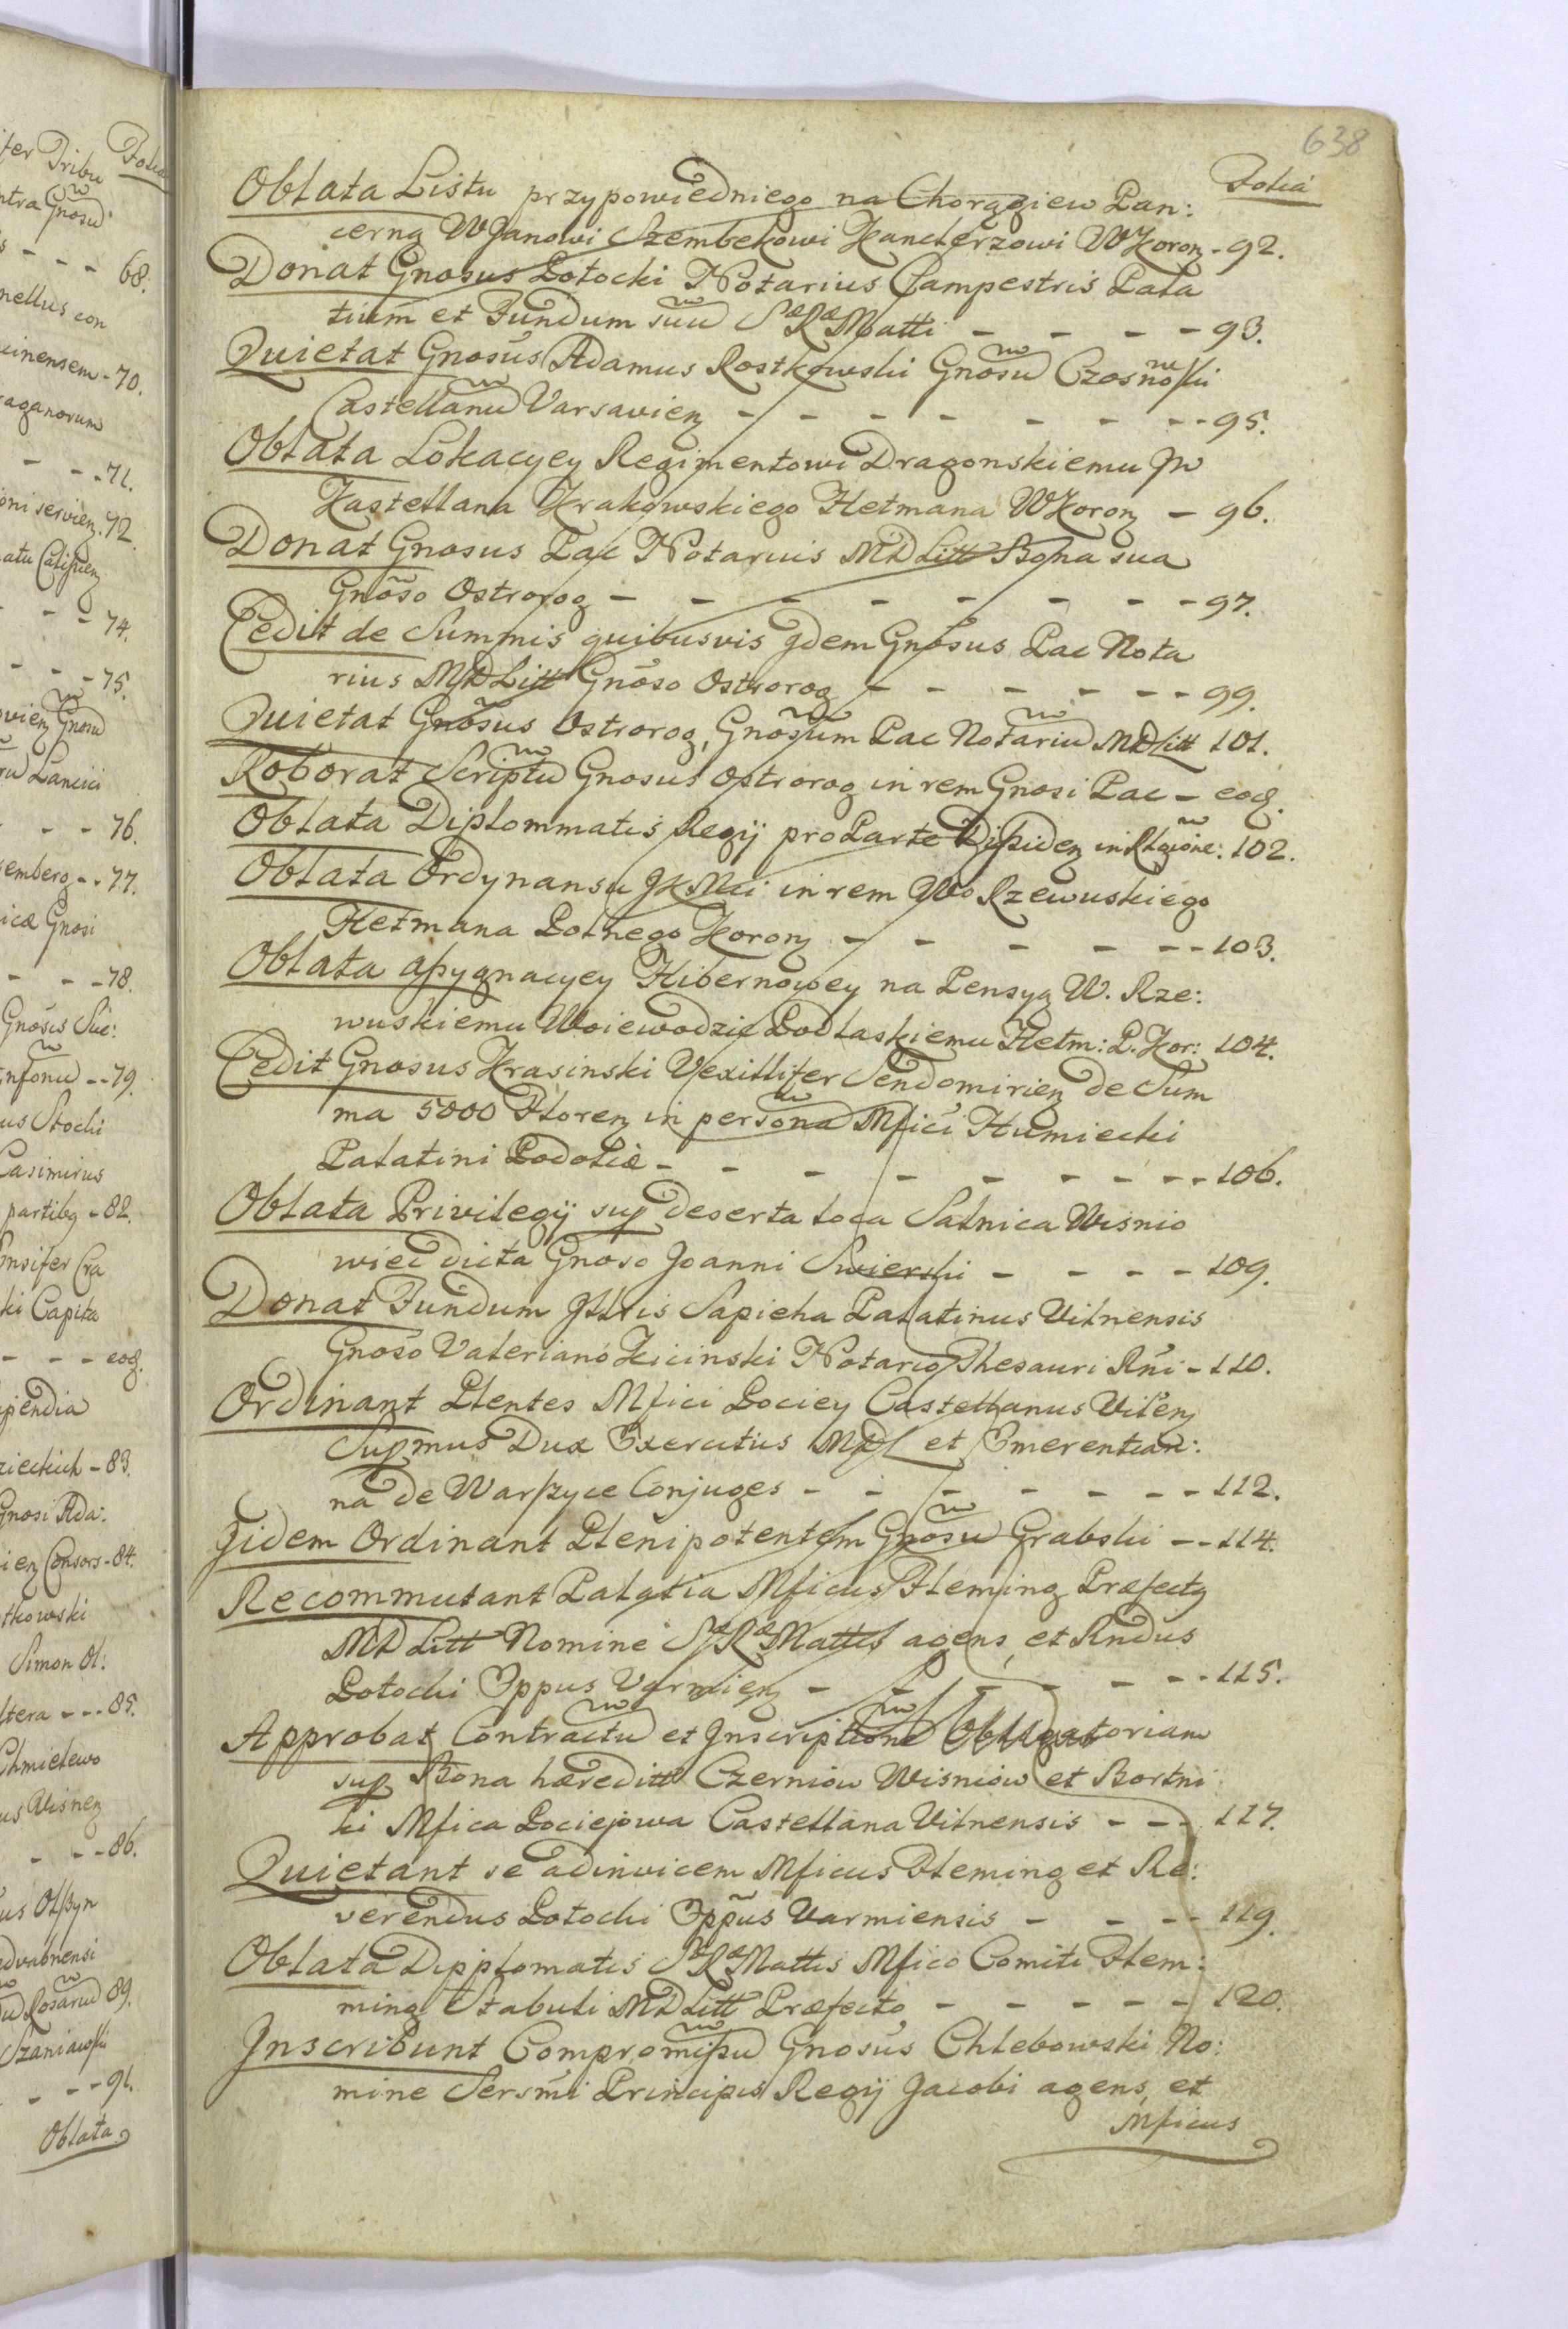 638
Folia
Oblata Listu przypowiedniego na Chorągiew Pan:
cerną WJanowi Szembekowi Kanclerzowi WKoron - 92.
Donat Gnosus Potocki Notarius Campestris Pala
tium et Fundum suu SæRæMatti - - - - 93.
Quietat Gnosus Adamus Rostkowski Gnosu Czosnoski
Castellanu Varsavien - - - - - - - 95.
Oblata Lokacyey Regimentowi Dragonskiemu JW
Kastellana Krakowskiego Hetmana WKoron - 96.
Donat Gnosus Pac Notarius MDLitt Bona sua
Gnoso Ostrorog - - - - - - - - 97.
Cedit de Summis quibusvis idem Gnosus Pac Nota
rius MDLitt Gnoso Ostrorog - - - - - - 99.
Quietat Gnosus Ostrorog, Gnosum Pac Notariu MDLitt 101.
Roborat Scriptu Gnosus Ostrorog in rem Gnosi Pac - eod.
Oblata Diplommatis Regij pro Parte Dissiden in Rlgione: 102.
Oblata Ordynansu JKMci in rem Wo Rzewuskiego
Hetmana Polnego Koron - - - - - - 103.
Oblata assygnacyey Hibernowey na Pensyą W. Rze:
wuskiemu Woiewodzie Podlaskiemu Hetm: P. Kor: 104.
Cedit Gnosus Krasinski Vexillifer Sendomirien de Sum
ma 5000 Floren in persona Mfici Humiecki
Palatini Podoliæ - - - - - - - - 106.
Oblata Privilegij sup deserta loca Salnica Wisnio
wiec dicta Gnoso Joanni Swierski - - - - 109.
Donat Fundum Jllris Sapieha Palatinus Vilnensis
Gnoso Valeriano Kicinski Notario Thesauri Rni - 110.
Ordinant Plentes Mfici Pociey Castellanus Vilen
Supmus Dux Exercitus MDL et Emerentian:
na de Warszyce Conjuges - - - - - - - 112.
Jidem Ordinant Plenipotentem Gnosu Grabski - - 114.
Recommutant Palatia Mficus Fleming Præfectq
MDLitt Nomine SæRæMattis agens, et Rndus
Potocki Eppus Varmien - - - - - - - 115.
Approbat Contractu et Jnscriptione Obligatoriam
sup Bona hæreditt Czerniow Wisniow et Bortni
ki Mfica Pociejowa Castellana Vilnensis - - - 117.
Quietant se adinvicem Mficus Fleming et Re:
verendus Potocki Eppus Varmiensis - - - - 119.
Oblata Dipplomatis SæRæMattis Mfico Comiti Flem:
ming Stabuli MDLitt Præfecto - - - - - 120.
Jnscribunt Compromissu Gnosus Chlebowski No:
mine Sersmi Principis Regij Jacobi agens, et
Mficus